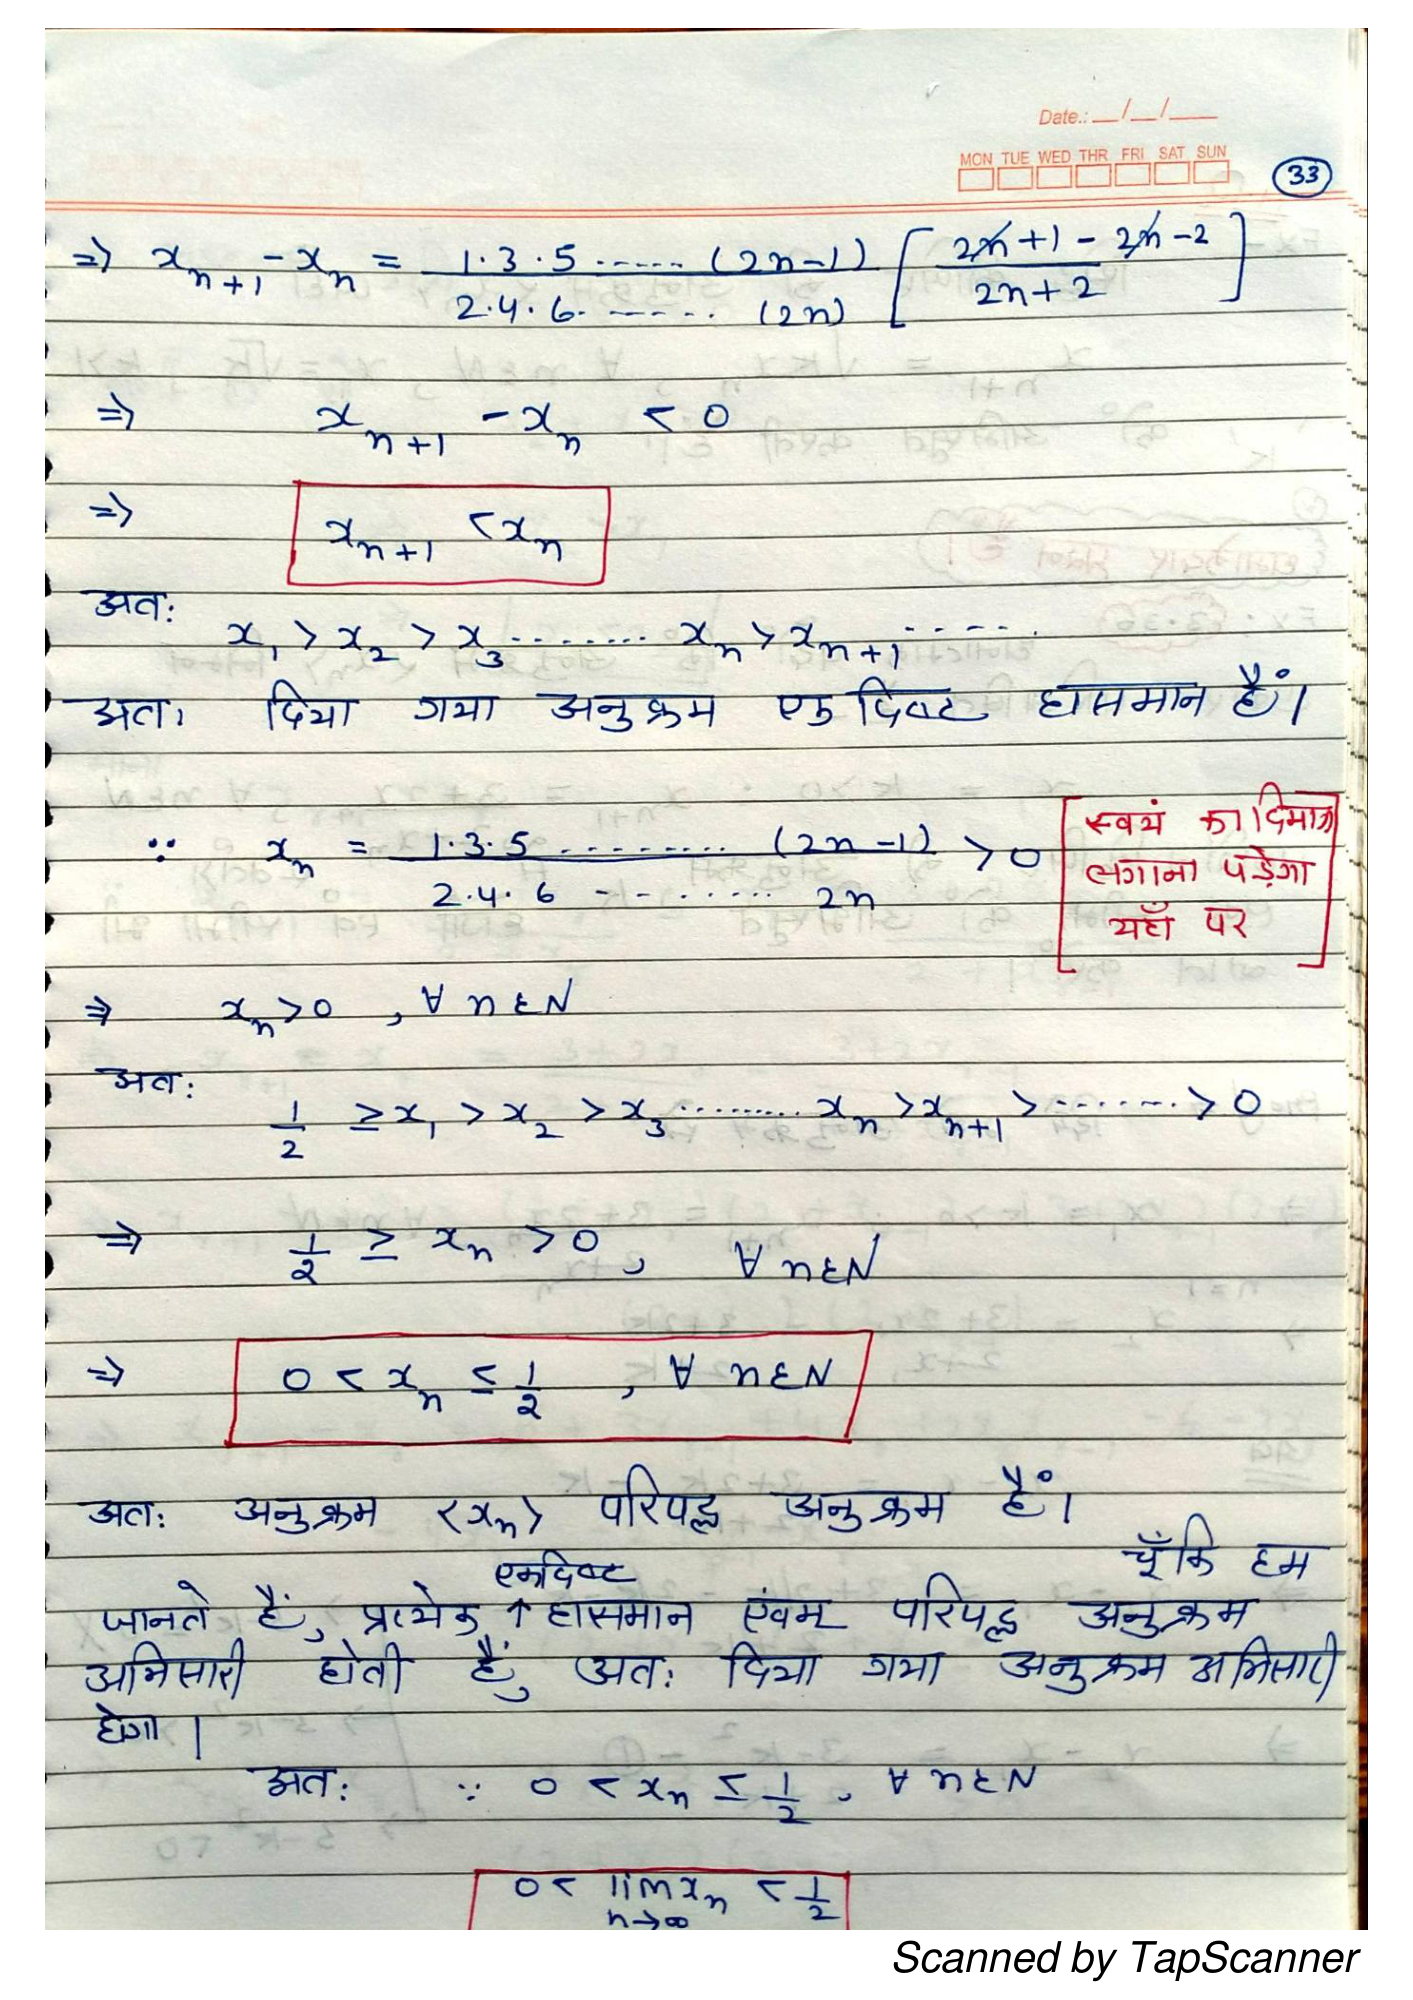 Date.: __/__/___
MON TUE WED THR FRI SAT SUN
33
=> x_{n+1} - x_n = 1·3·5 ..... (2n-1) / 2·4·6 ...... (2n) [ 2n+1 - 2n-2 / 2n+2 ]
=> x_{n+1} - x_n < 0
=> x_{n+1} < x_n
अतः
x_1 > x_2 > x_3 ........ x_n > x_{n+1} .....
अतः दिया गया अनुक्रम एकदिष्ट ह्रासमान हैं।
∵ x_n = 1·3·5 ......... (2n-1) / 2·4·6 ....... 2n > 0
[स्वयं का दिमाग
लगाना पड़ेगा
यहाँ पर]
⇒ x_n > 0 , ∀ n ∈ N
अतः
1/2 ≥ x_1 > x_2 > x_3 ......... x_n > x_{n+1} > ....... > 0
=> 1/2 ≥ x_n > 0 , ∀ n ∈ N
=> 0 < x_n ≤ 1/2 , ∀ n ∈ N
अतः अनुक्रम <x_n> परिबद्ध अनुक्रम हैं।
चूँकि हम
एकदिष्ट
जानते हैं, प्रत्येक ↑ ह्रासमान एंवम् परिबद्ध अनुक्रम
अभिसारी होती हैं, अतः दिया गया अनुक्रम अभिसारी
होगा।
अतः ∵ 0 < x_n ≤ 1/2 , ∀ n ∈ N
0 < lim_{n→∞} x_n < 1/2
Scanned by TapScanner